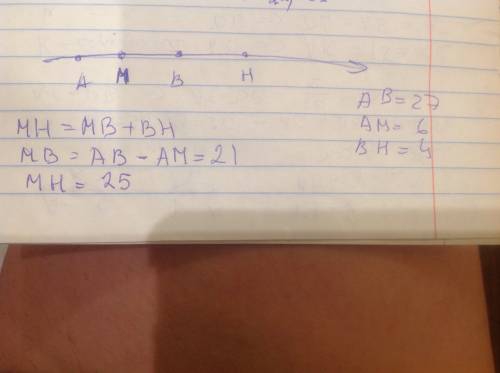 A M B H
AB = 27
AM = 6
BH = 4
MH = MB + BH
MB = AB - AM = 21
MH = 25